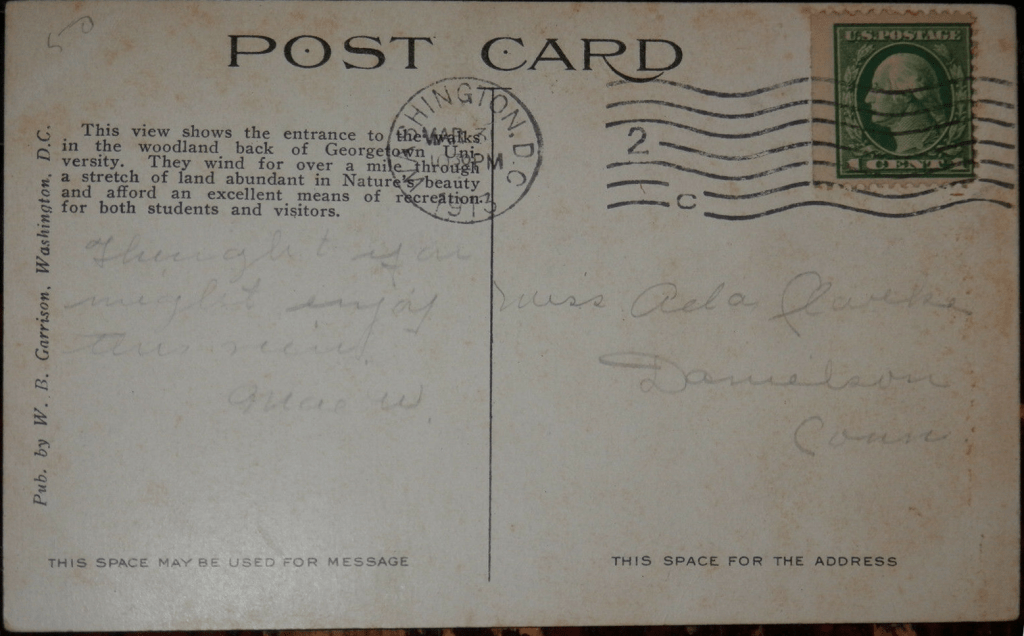 50
POST CARD
U.S. POSTAGE
1 CENT
WASHINGTON. D.C.
MAR 3
PM
1913
2
C
This view shows the entrance to the walks
in the woodland back of Georgetown Uni-
versity. They wind for over a mile through
a stretch of land abundant in Nature's beauty
and afford an excellent means of recreation
for both students and visitors.
Pub. by W. B. Garrison, Washington, D.C.
Thought you
might enjoy
this view.
Mae W
Miss Ada
Danielson
Conn
THIS SPACE MAY BE USED FOR MESSAGE
THIS SPACE FOR THE ADDRESS